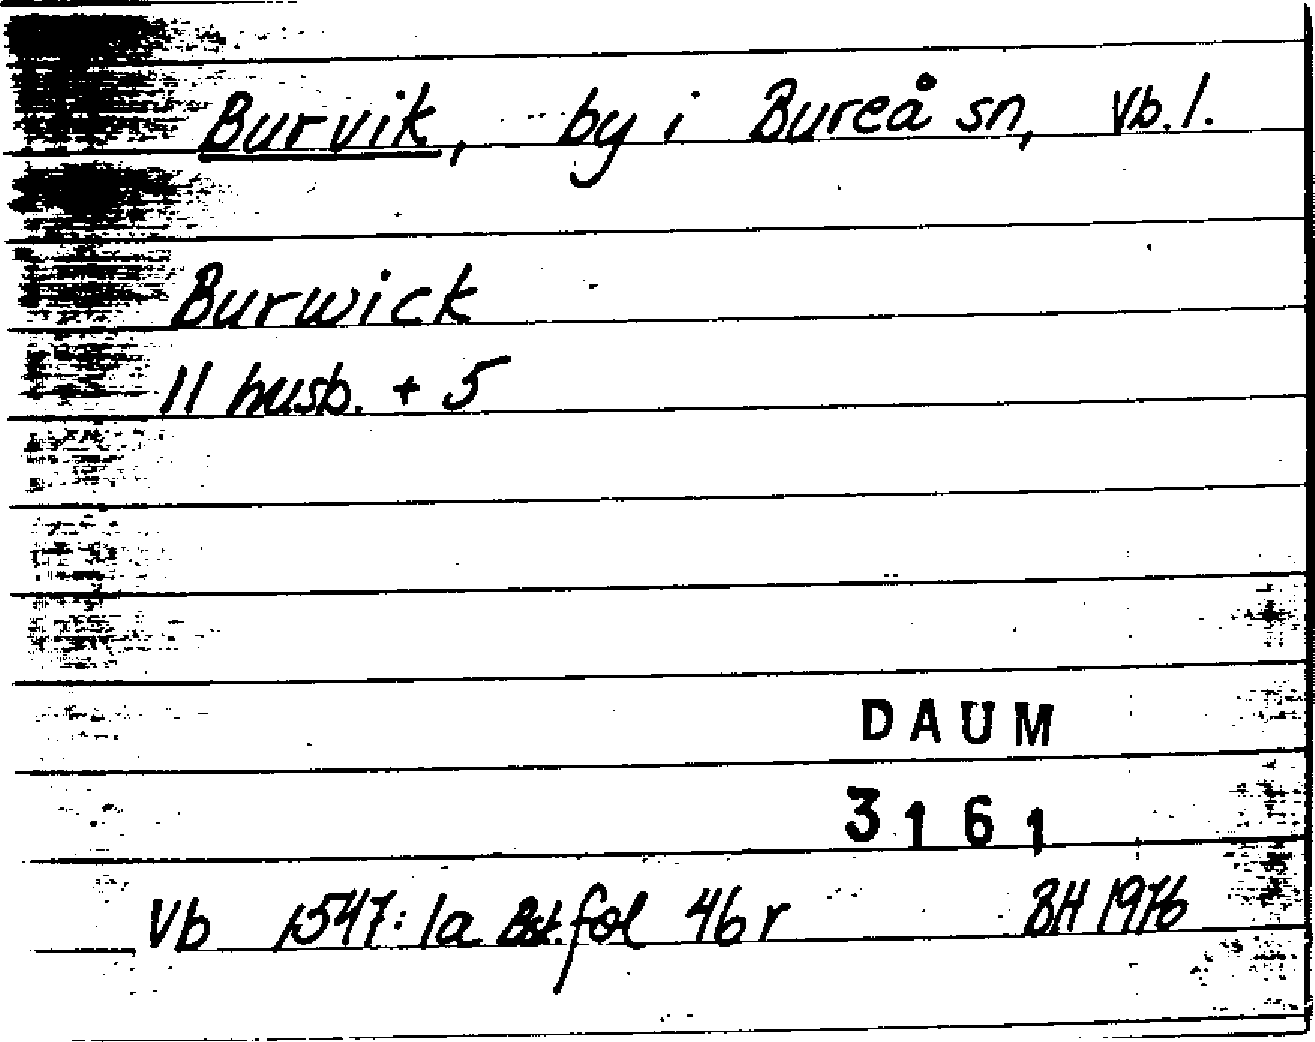 Burvik, by i Bureå sn, Vb.l.
Burwick
11 husb. + 5
DAUM
3161
Vb 1547:1a Bst. fol 46r BH 1976